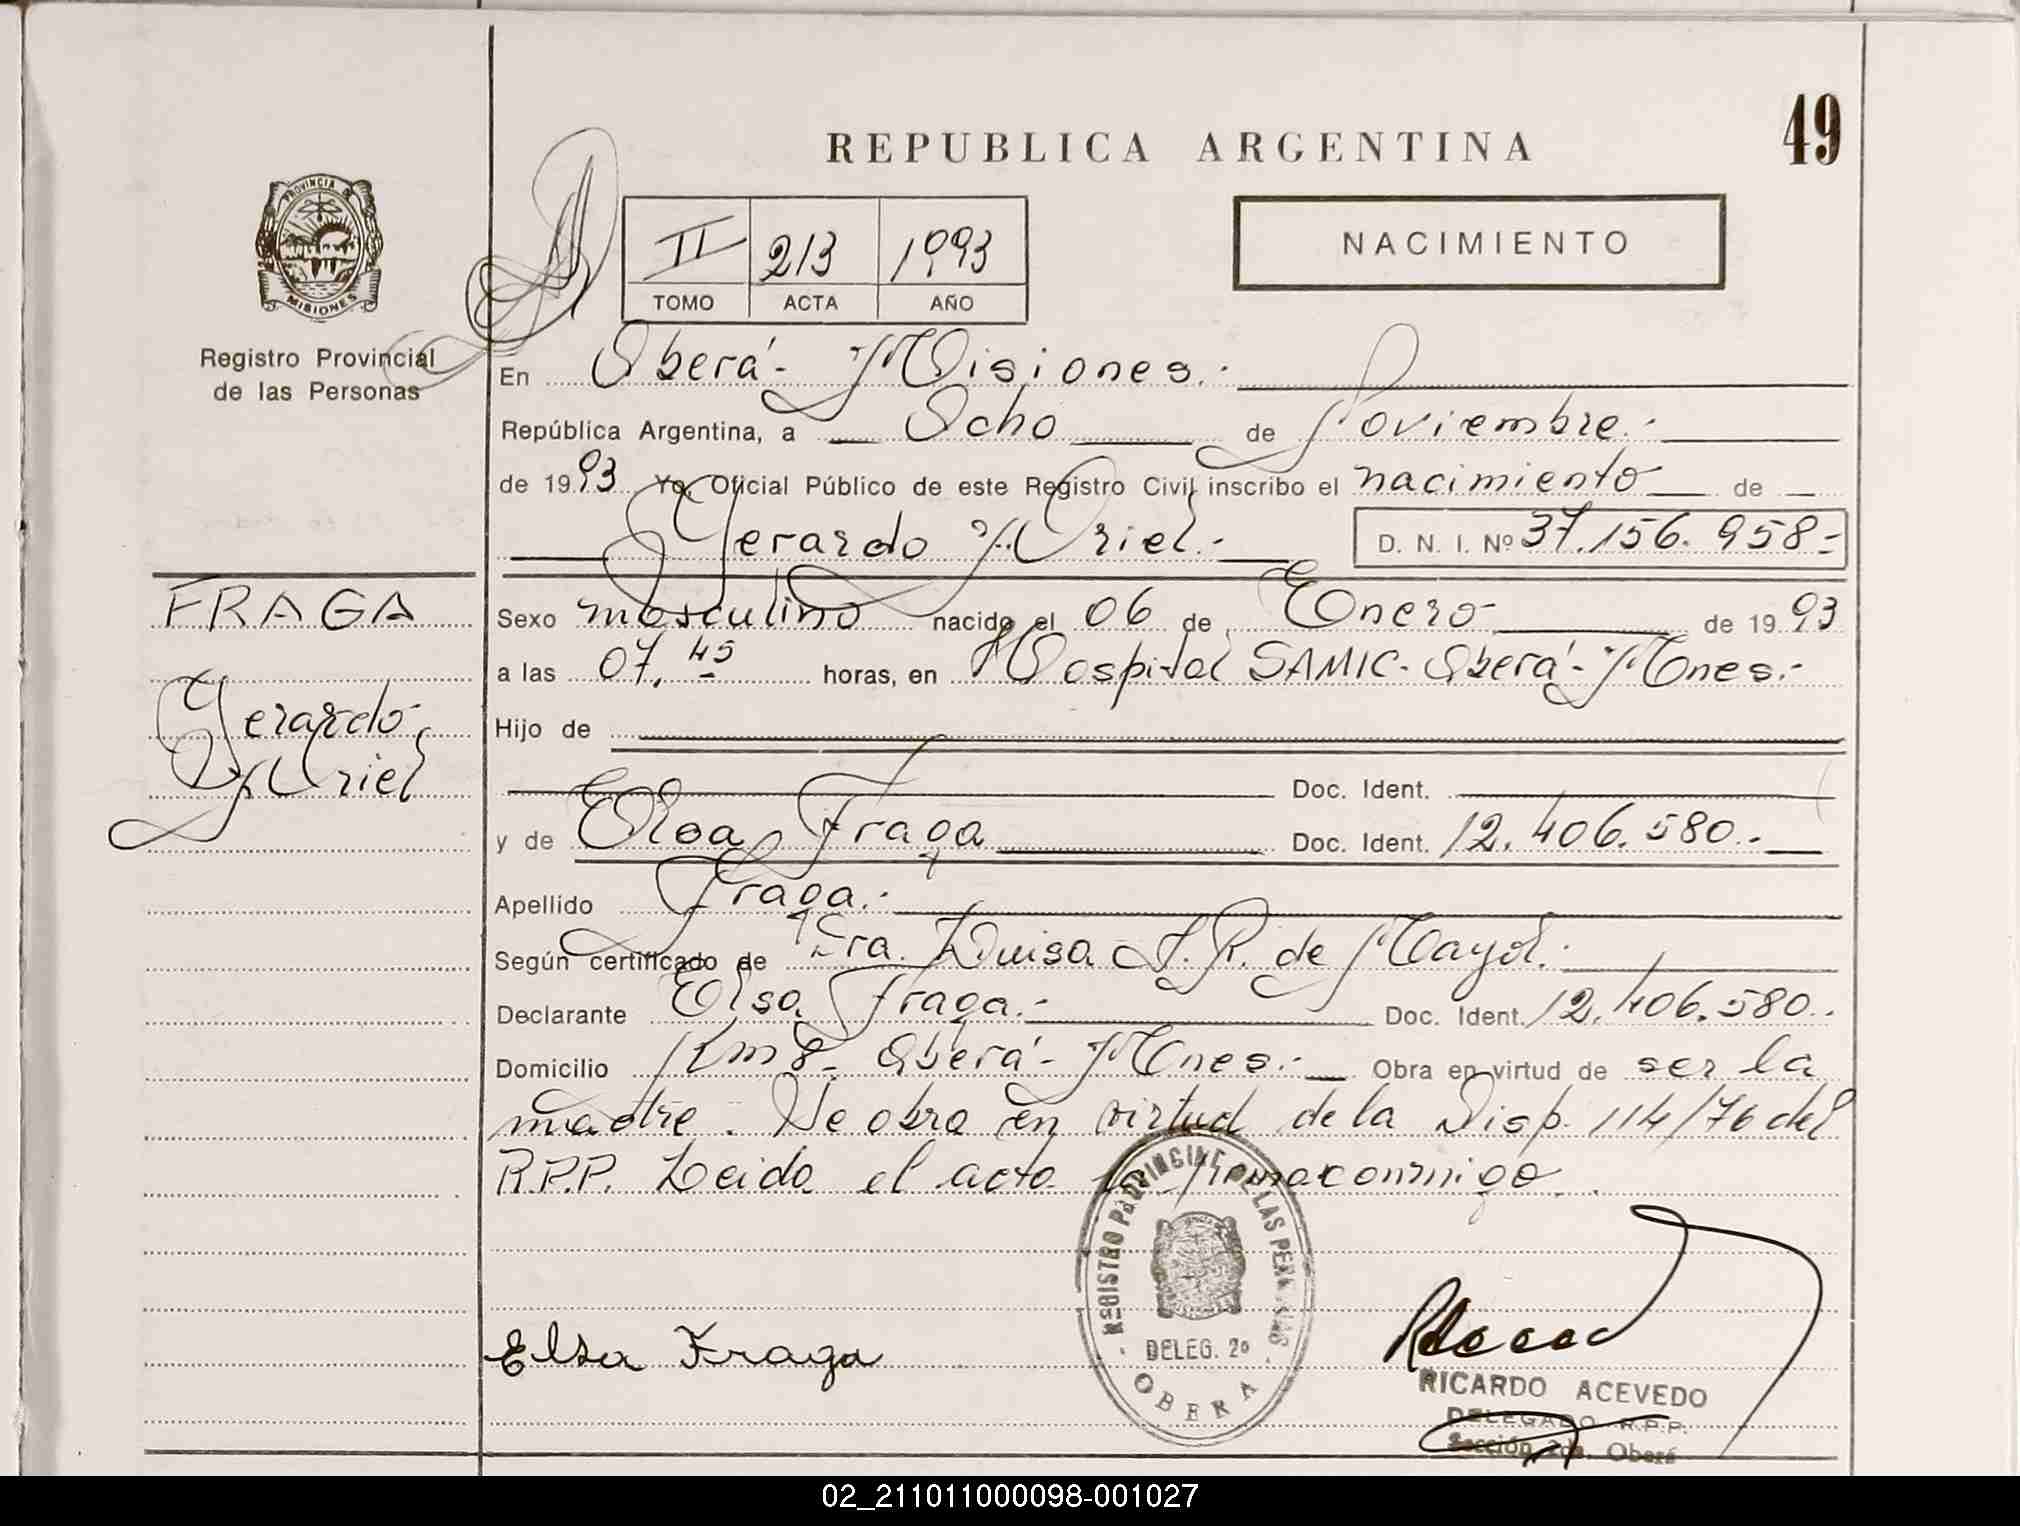 49
REPUBLICA ARGENTINA
PROVINCIA DE
MISIONES
Registro Provincial
de las Personas
II 213 1993
TOMO ACTA AÑO
NACIMIENTO
En Oberá - Misiones.-
República Argentina, a Ocho de Noviembre.-
de 1993 Yo, Oficial Público de este Registro Civil inscribo el nacimiento de
Gerardo Uriel.-
D. N. I. Nº 37.156.958-
FRAGA
Gerardo
Uriel
Sexo masculino nacido el 06 de Enero de 1993
a las 07.45 horas, en Hospital SAMIC - Oberá - Mnes.-
Hijo de
Doc. Ident.
y de Elsa Fraga Doc. Ident. 12.406.580.-
Apellido Fraga.-
Según certificado de Dra. Luisa A. R. de Mayol.-
Declarante Elsa Fraga.- Doc. Ident. 12.406.580.-
Domicilio Km 8 - Oberá - Mnes.- Obra en virtud de ser la
madre. Se obra en virtud de la Disp. 114/76 del
R.P.P. Leida el acta la firma conmigo.
REGISTRO PROVINCIAL DE LAS PERSONAS
DELEG. 2º
OBERA
Elsa Fraga
RICARDO ACEVEDO
DELEGADO R.P.P.
Sección 2da. Oberá
02_211011000098-001027